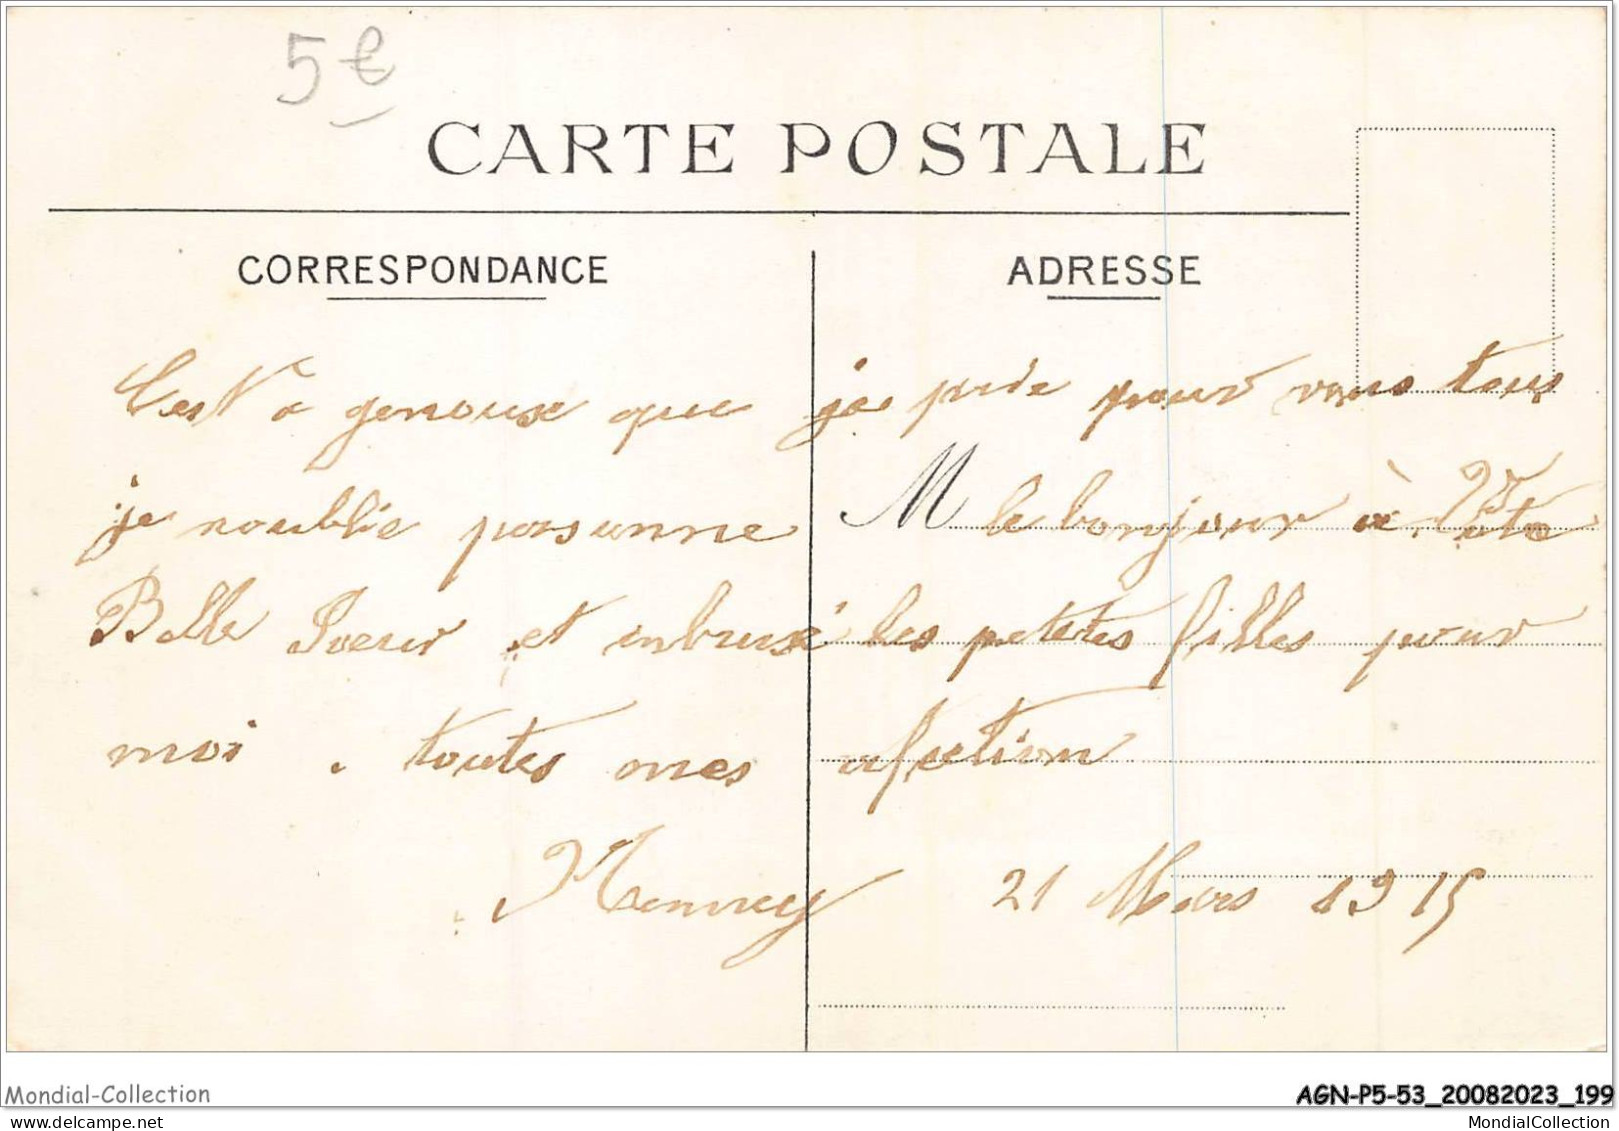 5€
CARTE POSTALE
CORRESPONDANCE
ADRESSE
C'est a genoux que je prie pour vous tous
je noublie personne
M le bonjour à Vôtre
Belle Soeur et enbrasé les petetes filles pour
moi . toutes mes afection
21 Mars 1915
Mondial-Collection
AGN-P5-53_20082023_199
MondialCollection